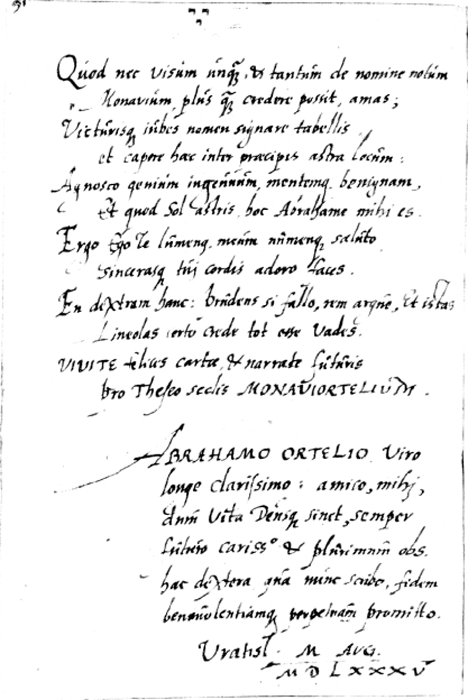 Quod nec visum unq̃, & tantum de nomine notum
Monavium, plus q̃ credere possit, amas;
Victurisq; iubes nomen signare tabellis
et capere hac inter præcipua astra locum:
Agnosco genium ingenuum, mentemq. benignam,
Et quod Sol astris, hoc Abrahame mihi es.
Ergo Ego Te lumenq. meum numenq. saluto
sincerasq tui cordis adoro faces.
En dextram hanc: prudens si fallo, rem argue, Et istas
Lineolas certo crede tot esse Vades.
VIVITE felices cartæ, & narrate futuris
pro Theseo seclis MONAVIORTELIUM.
ABRAHAMO ORTELIO Viro
longe clarissimo: amico, mihj,
dum Vita Deusq sinet, semper
futuro cariss.º & plurimum obs.
hac dextera qua nunc scribo, fidem
benevolentiamq perpetuam promitto.
Uratisl. M AUG.
MDLXXXV